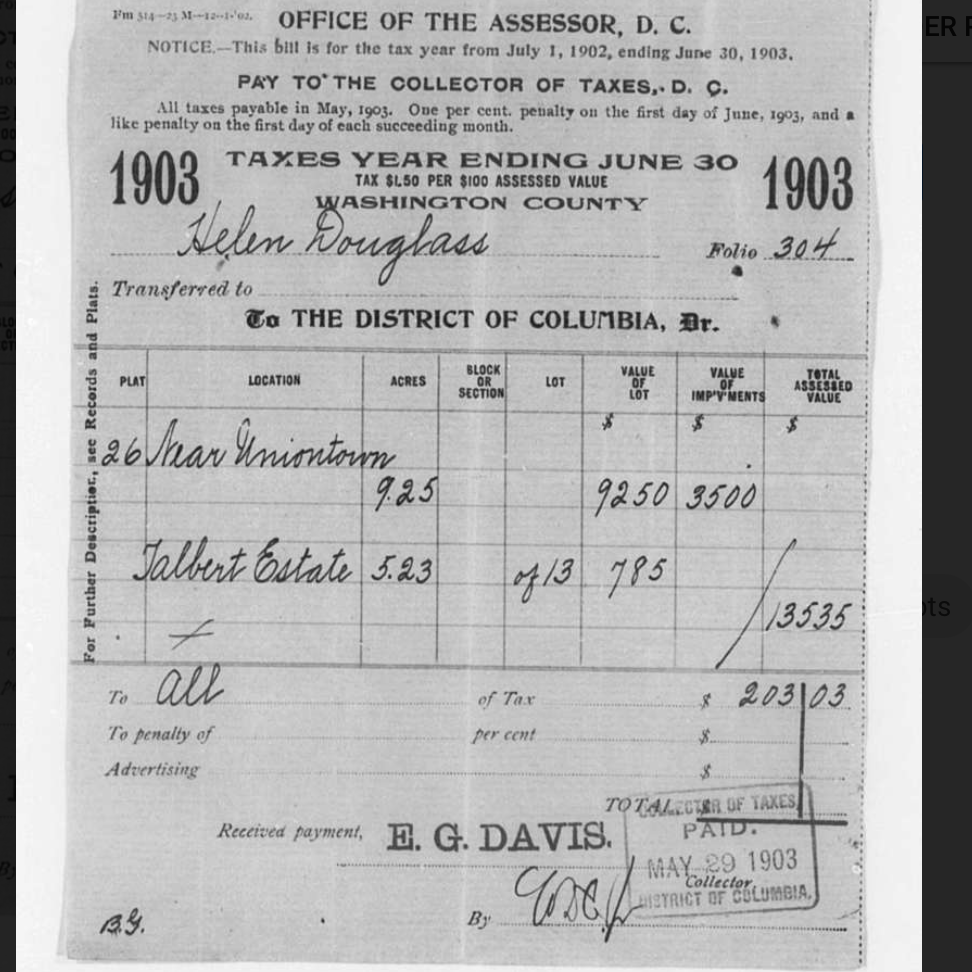 Fm 514—25 M—12-1-'02.
OFFICE OF THE ASSESSOR, D. C.
NOTICE.—This bill is for the tax year from July 1, 1902, ending June 30, 1903.
PAY TO THE COLLECTOR OF TAXES, D. C.
All taxes payable in May, 1903. One per cent. penalty on the first day of June, 1903, and a
like penalty on the first day of each succeeding month.
1903 TAXES YEAR ENDING JUNE 30 1903
TAX $1.50 PER $100 ASSESSED VALUE
WASHINGTON COUNTY
Helen Douglass Folio 304
Transferred to
To THE DISTRICT OF COLUMBIA, Dr.
For Further Description, see Records and Plats.
PLAT LOCATION ACRES BLOCK OR SECTION LOT VALUE OF LOT VALUE OF IMP'V'MENTS TOTAL ASSESSED VALUE
$ $ $
26 Near Uniontown
9.25 9250 3500
Talbert Estate 5.23 of 13 785
13535
To all of Tax $ 203 03
To penalty of per cent $
Advertising $
TOTAL
COLLECTOR OF TAXES
PAID.
Received payment, E. G. DAVIS.
MAY 29 1903
Collector.
DISTRICT OF COLUMBIA.
B.G. By
ER
ots